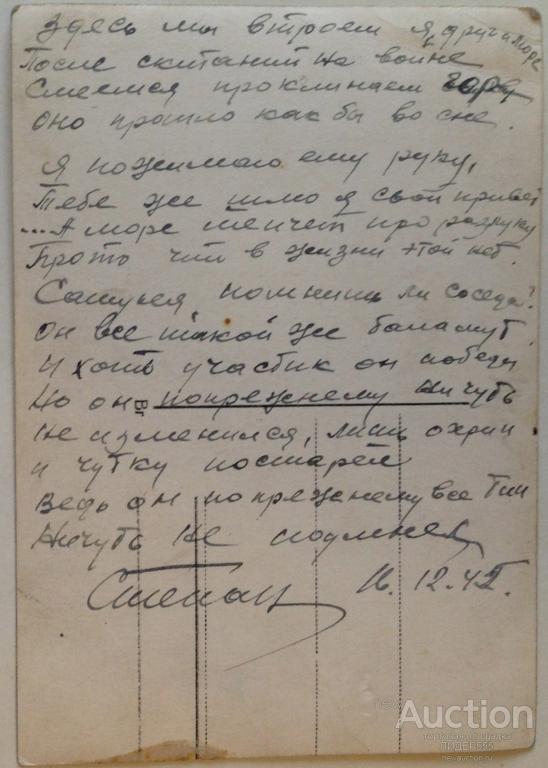 Здесь мы втроем я, друг и море
После скитаний на войне
Смеемся проклинаем горе
Оно прошло как бы во сне.
Я пожимаю ему руку,
Тебе же шлю я свой привет
... А море шепчет про разруку
Про то чт в жизни той нет.
Сашуня помнишь ли соседа?
Он все такой же баламут
И хоть участник он победы
Но он попрежнему ничуть
Не изменился, лишь охрип
и чутку постарел
Ведь он попрежнему все тип
Ничуть не поумнел
Степан 16. 12. 45г.
Br
Auction
ЛИДЕР555
newauction.ru